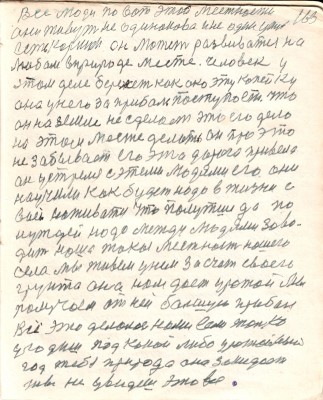 Все люди по вот этой местности 183
они живут не одинакова и не один с них
есть он может развиватся на
любом в природе месте. Человек у
этом деле бережет как око эту копейку
она у него за прибал поступости. Что
он на земле не сделает это его дело
на этом месте делать он про это
не забывает его это дорога привела
он устрел с этими людями его они
научили как будет надо в жизни с
наживати что полутше да по
нуждей надо между людями заво-
дит наша такая местность нашего
села мы живем у нем за счет своего
грунта она нам дает урожай мы
получаем от ней большую прибал
Все это деланое нами сем только
угодиш под какой либо урожайный
год тебе природа она
ты не увидеш этого.